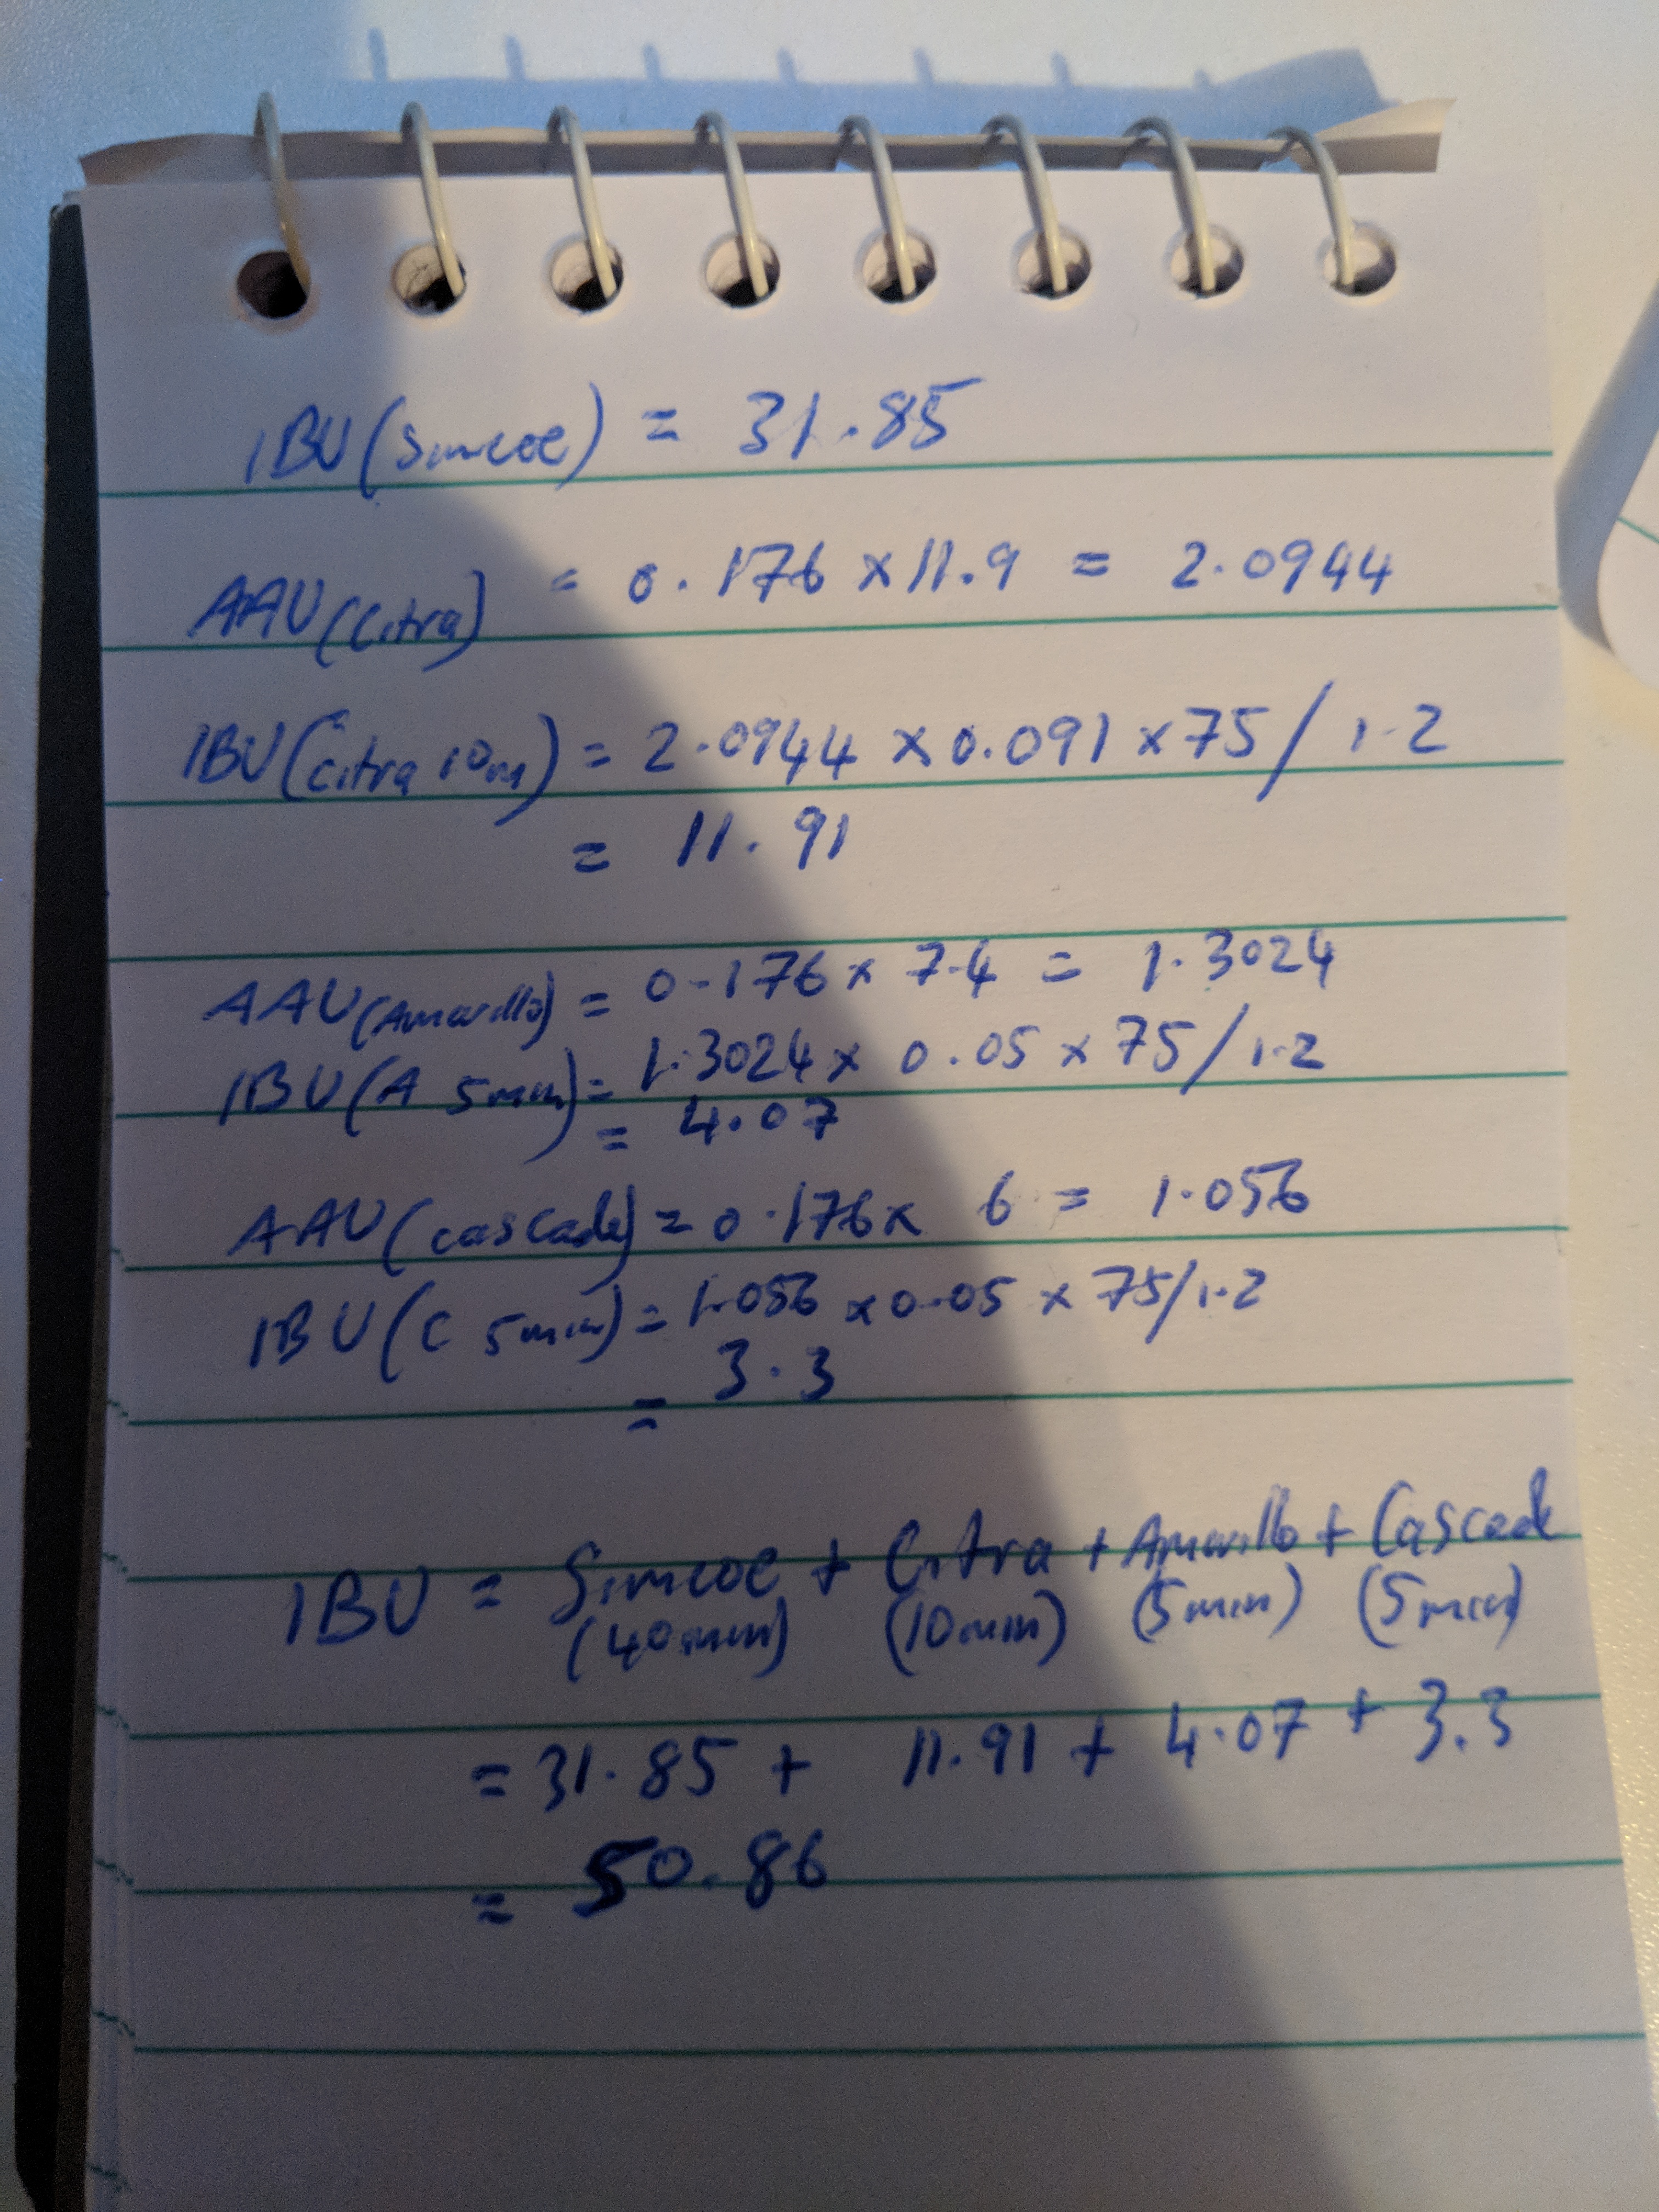 IBU(Simcoe) = 31.85
AAU(Citra) = 0.176 x 11.9 = 2.0944
IBU(Citra 10m) = 2.0944 x 0.091 x 75 / 1.2
= 11.91
AAU(Amarillo) = 0.176 x 7.4 = 1.3024
IBU(A 5min) = 1.3024 x 0.05 x 75 / 1.2
= 4.07
AAU(cascade) = 0.176 x 6 = 1.056
IBU(C 5min) = 1.056 x 0.05 x 75/1.2
= 3.3
IBU = Simcoe + Citra + Amarillo + Cascade
(40min) (10min) (5min) (5min)
= 31.85 + 11.91 + 4.07 + 3.3
= 50.86